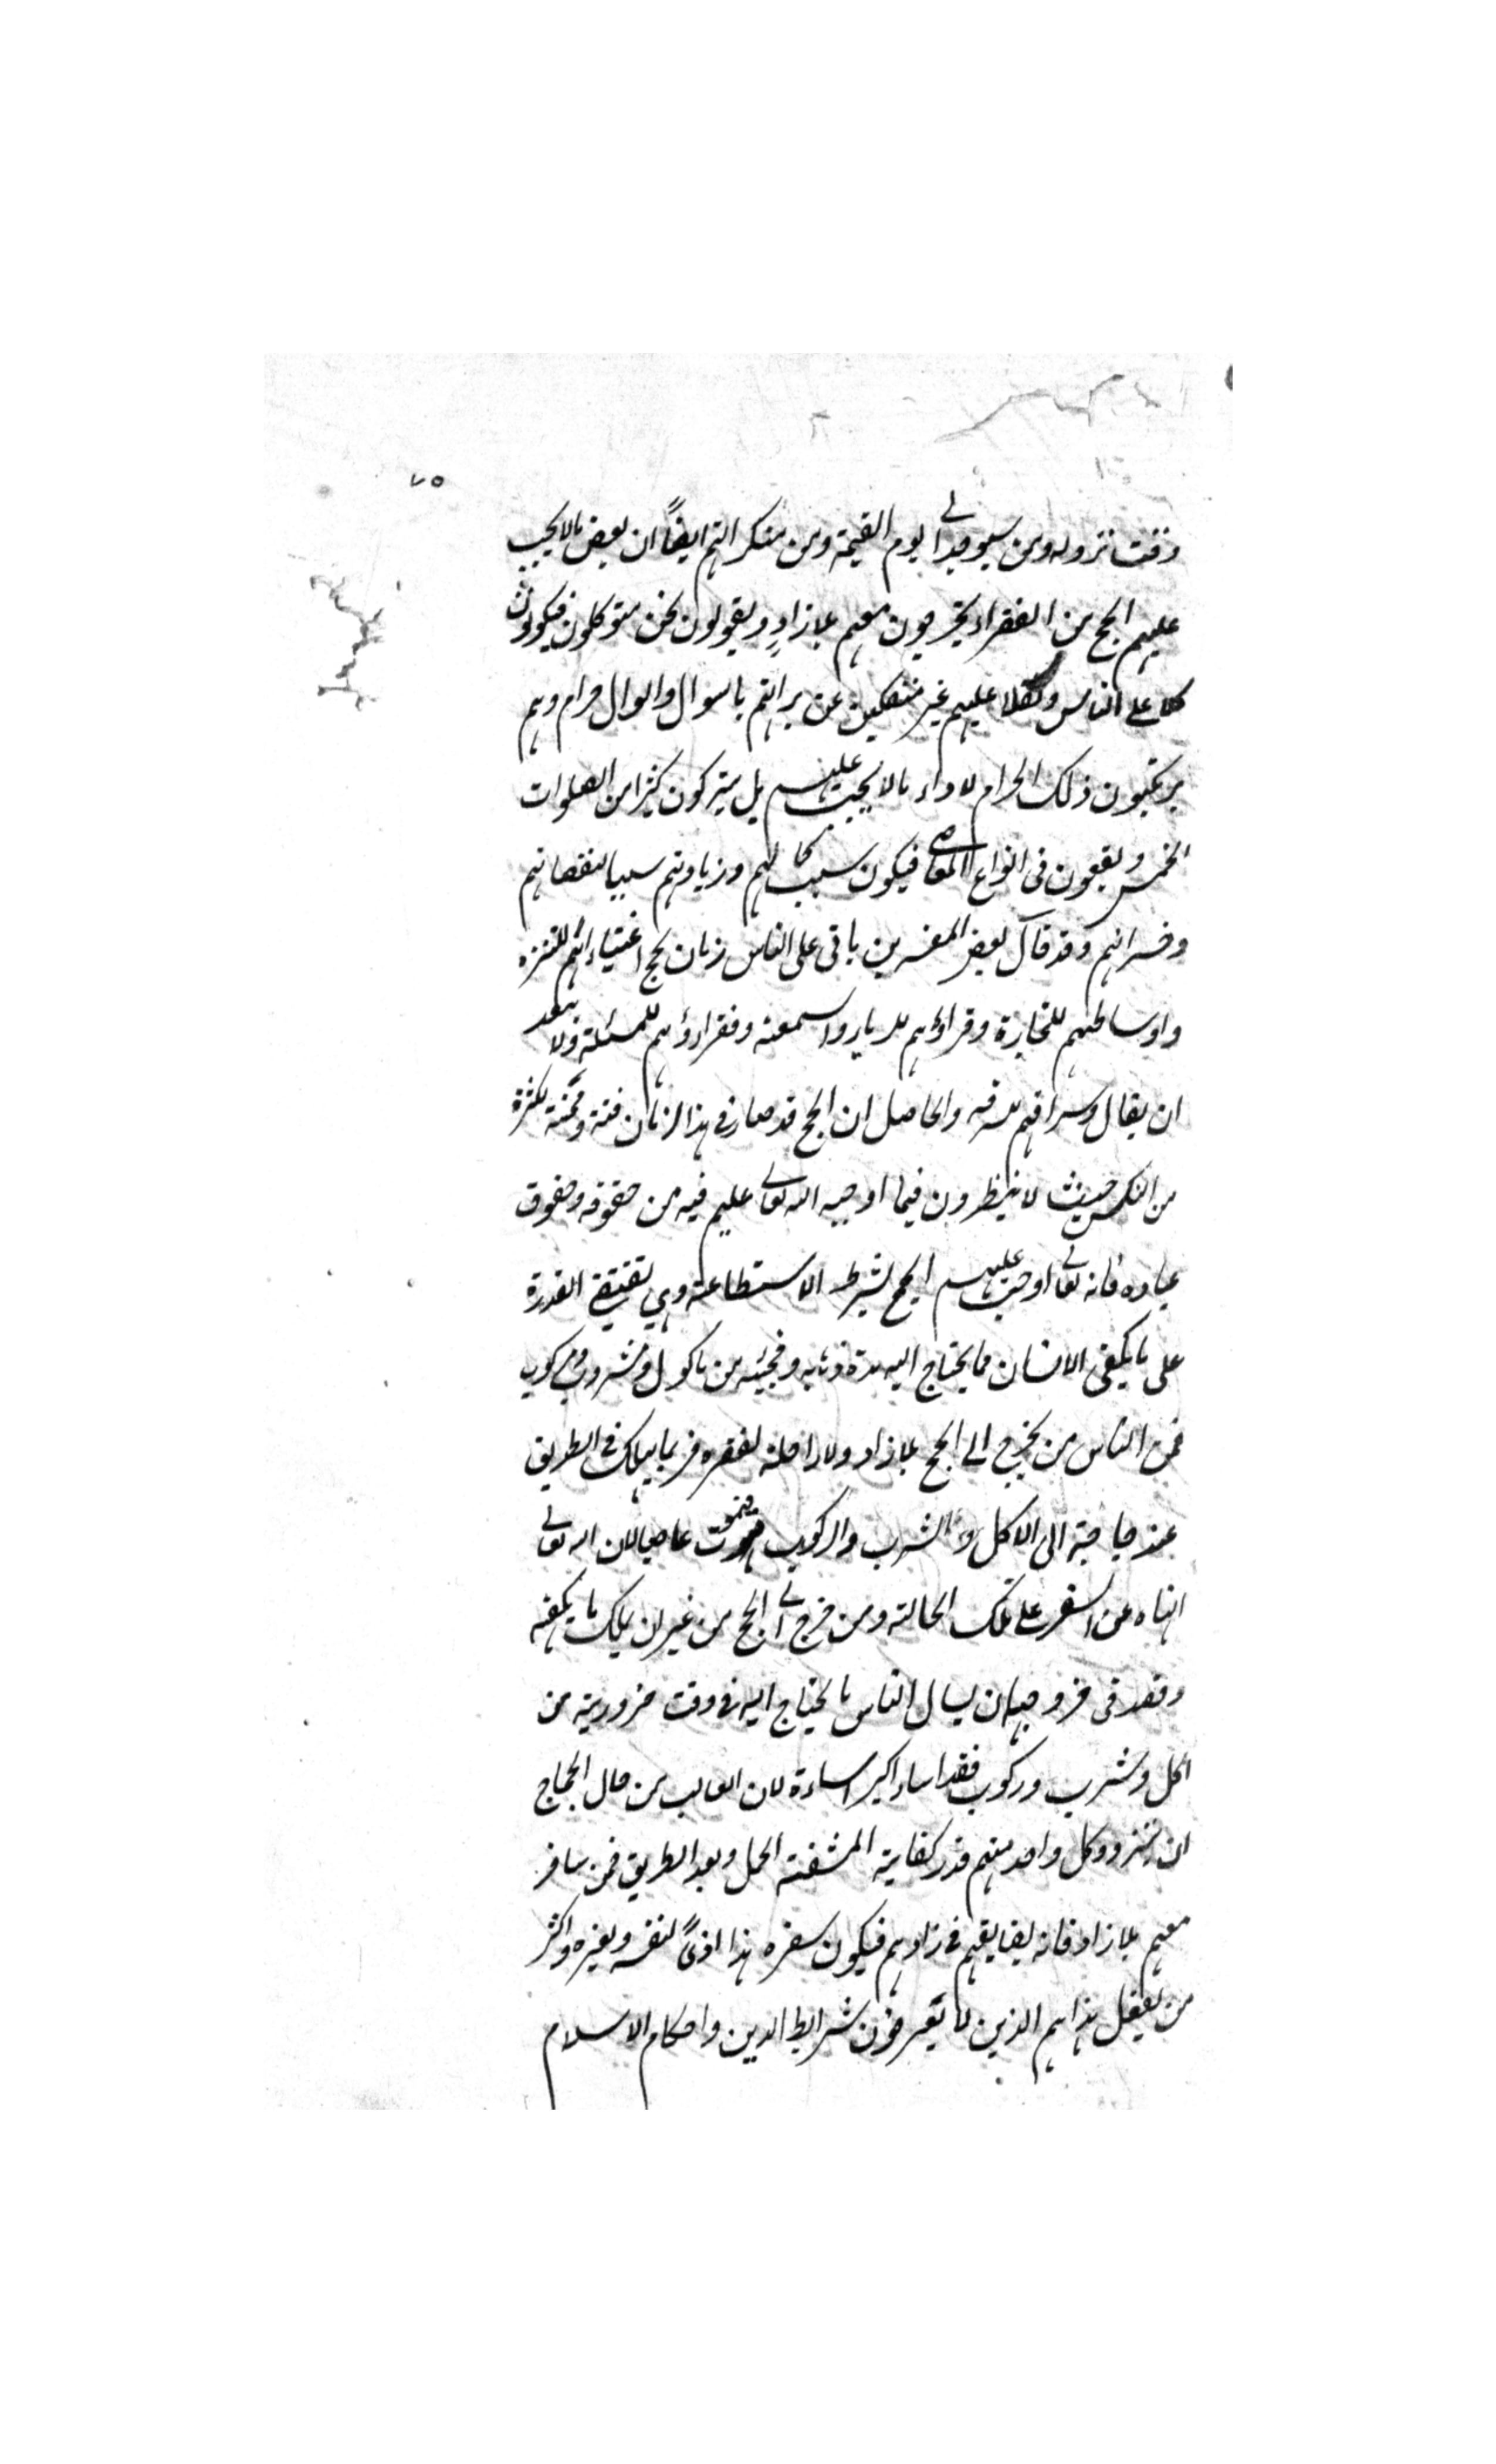 ٧٥
وقت نزوله ومن سيوجد الى يوم القيمة ومن منكراتهم ايضاً ان بعض مالا يجب
عليهم الحج من الفقراء يخرجون معهم بلا زادٍ ويقولون نحن متوكلون فيكونون
كلا على الناس وثقلا عليهم غير منفكين عن برائتهم بالسوال والسوال حرام وهم
يرتكبون ذلك الحرام لاداء مالا يجب عليهم بل يتركون كثيرا من الصلوات
الخمس ويقعون فى انواع المعاصى فيكون سبب كمالهم وزيادتهم سببا لنقصانهم
وخسرانهم وقد قال بعض المفسرين ياتى على الناس زمان يحج اغنياءهم للتنزه
واوساطهم للتجارة وقراؤهم للرياء والسمعة وفقراؤهم للمسئلة ولا يبعد
ان يقال وسراقهم للسرقة والحاصل ان الحج قد صار فى هذا الزمان فتنة ومحنة لكثرة
من الناس حيث لا ينظرون فيما اوجبه الله تعالى عليهم فيه من حقوقه وحقوق
عباده فانه تعالى اوجب عليهم الحج بشرط الاستطاعة وهي تقتضي القدرة
على ما يكفى الانسان مما يحتاج اليه مدة ذهابه ومجيئه من ماكول ومشروب ومركوب
فمن الناس من يخرج الى الحج بلا زاد ولا راحلة لفقره فربما يهلك فى الطريق
عند حاجته الى الاكل والشرب والركوب فيموت عاصيا لان الله تعالى
انهاه عن السفر على تلك الحالة ومن خرج الى الحج من غير ان يملك ما يكفيه
وقصد فى خروجه ان يسال الناس ما يحتاج اليه فى وقت ضروريته من
اكل وشرب وركوب فقد اساء اكبر اساءة لان الغالب من حال الحجاج
ان يتزود كل واحد منهم قدر كفايته المشقة الحمل وبعد الطريق فمن سافر
معهم بلا زاد فانه يضايقهم فى زادهم فيكون سفره هذا اذىً لنفسه ولغيره واكثر
من يفعل هذا هم الذين لا يعرفون شرايط الدين واحكام الاسلام